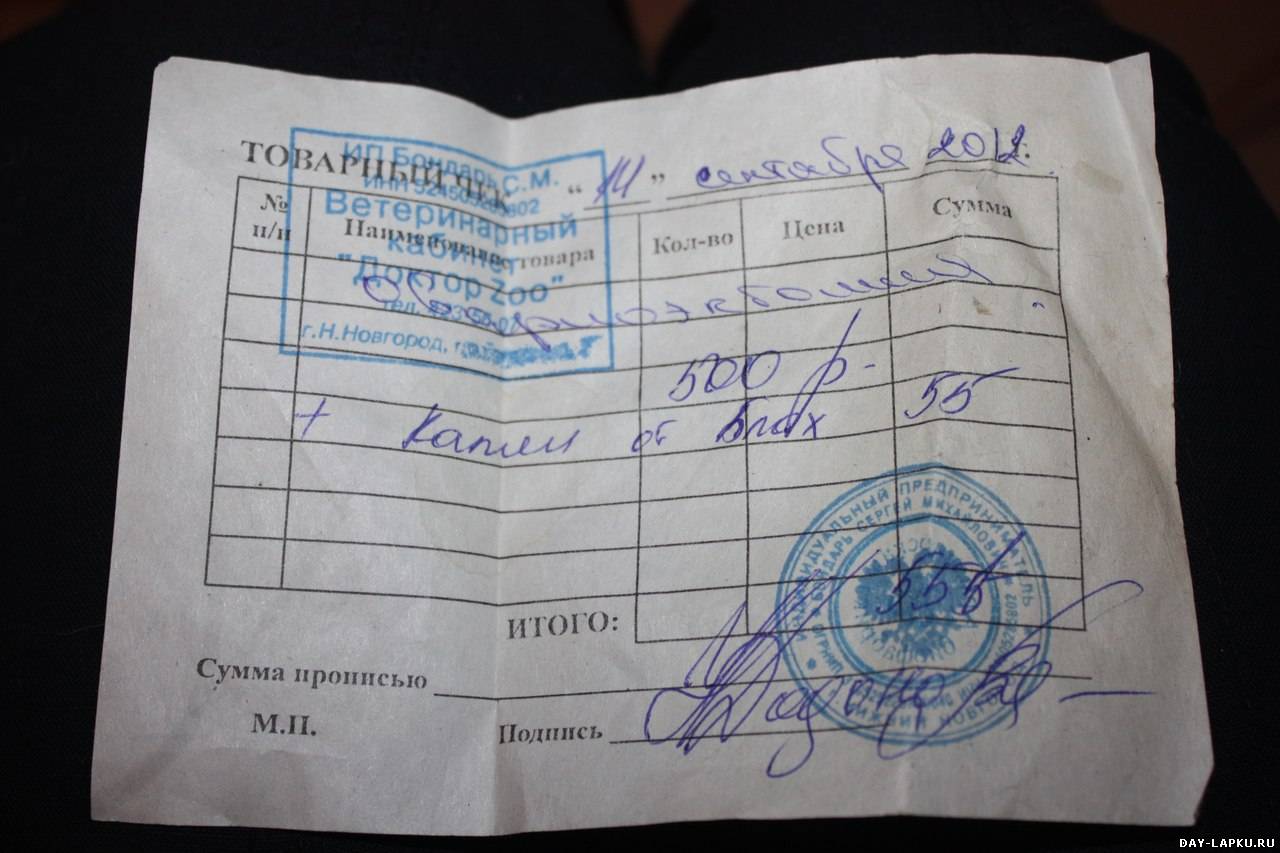 ТОВАРНЫЙ ЧЕК "14" сентября 2012 г.
ИП Бондарь С.М.
ИНН
Ветеринарный
кабинет
"Доктор Zoo"
тел.
г.Н.Новгород,
№ п/п Наименование товара Кол-во Цена Сумма
500 р-
+ Капли от блох 55
ИТОГО: 555
ИНДИВИДУАЛЬНЫЙ ПРЕДПРИНИМАТЕЛЬ
БОНДАРЬ СЕРГЕЙ МИХАЙЛОВИЧ
НИЖНИЙ НОВГОРОД
Сумма прописью
М.П. Подпись
DAY-LAPKU.RU